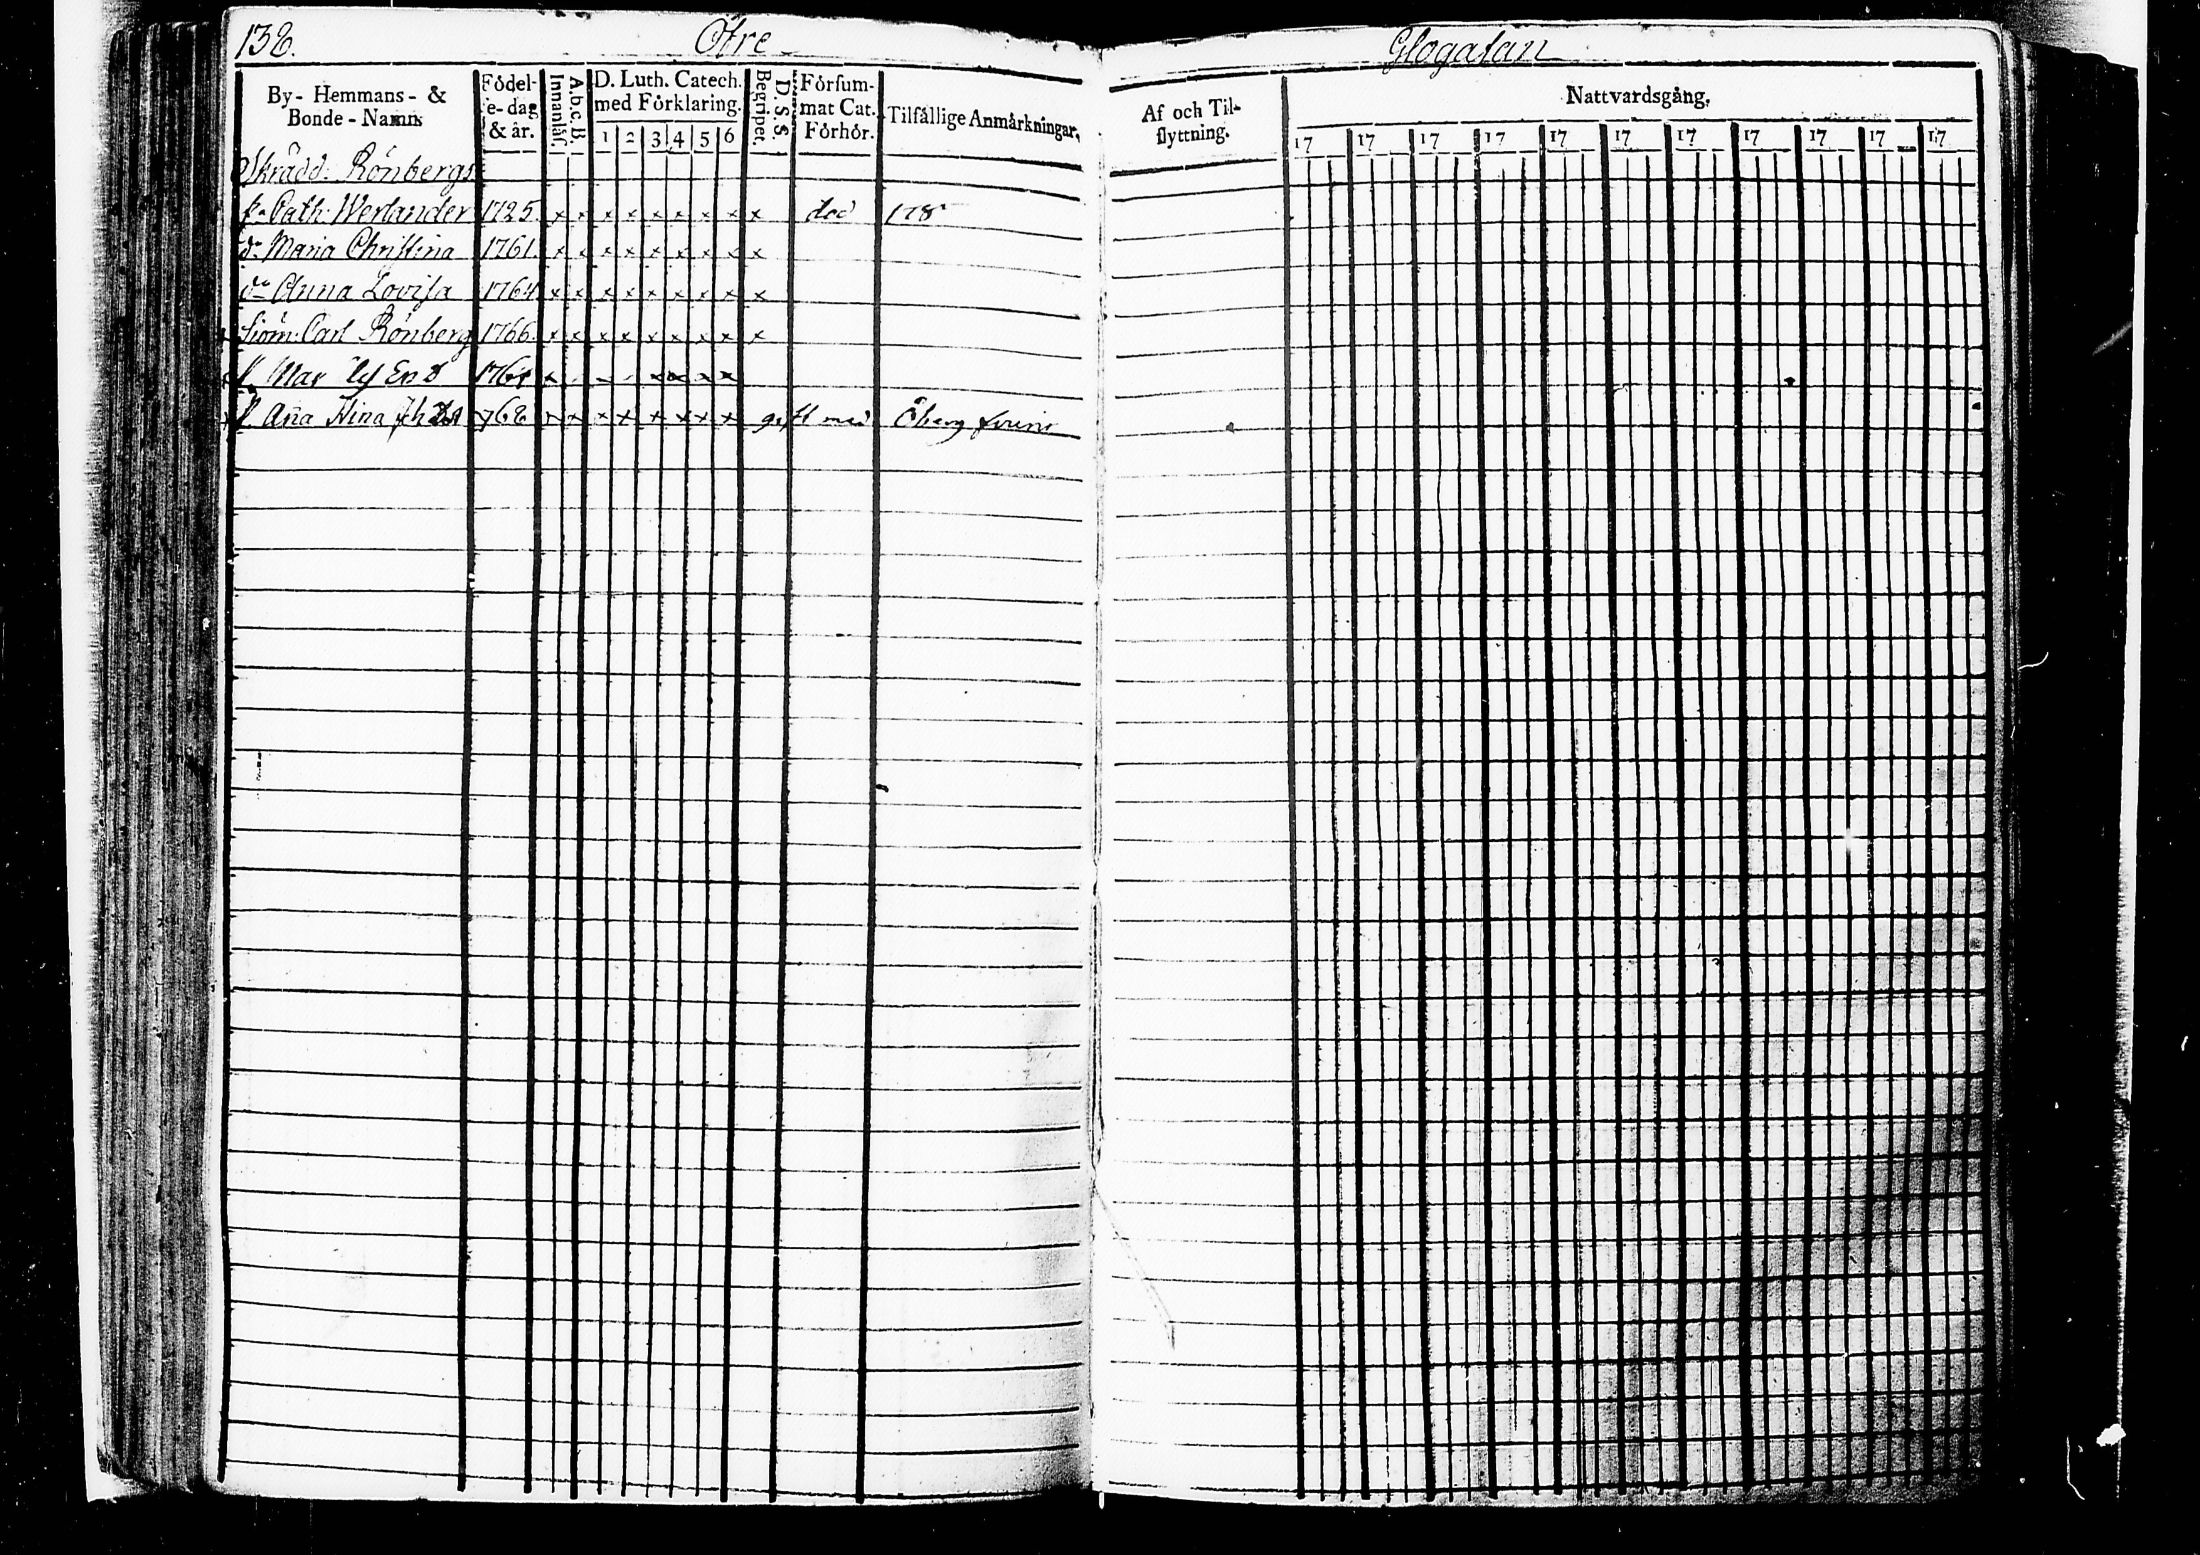 138.
Öfre
Glogatan
By- Hemmans- & Bonde-Namn
Födel-e-dag & år.
Innanläs.
A.b.c.B.
D. Luth. Catech. med Förklaring.
1 2 3 4 5 6
Begripet.
D. S. S.
Försum-mat Cat. Förhör.
Tilfällige Anmärkningar.
Af och Til-flyttning.
Nattvardsgång.
17 17 17 17 17 17 17 17 17 17 17
Skrädd: Rönbergs
Cath: Werlander 1725. x x x x x x x x x död 178
dr Maria Christina 1761. x x x x x x x x x
dr Anna Lovisa 1764 x x x x x x x x x
Siöm: Carl Rönberg 1766. x x x x x x x x x
Mar
Ana Stina 768 x x x x x x x x gift med Öberg